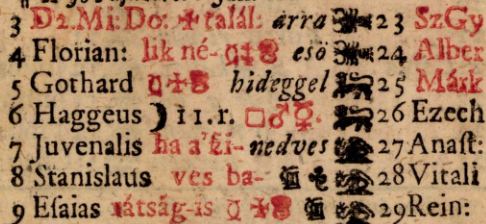 3 D2. Mi: Do: ✠ talál: árra 23 SzGy
4 Florian: lik né- esö 24 Alber
5 Gothard hideggel 25 Márk
6 Haggeus ☽ 11. r. □♂☿. 26 Ezech
7 Juvenalis ha a' ki- nedves 27 Anaſt:
8 Stanislaus ves ba- 28 Vitali
9 Eſaias rátság-is 29 Rein: